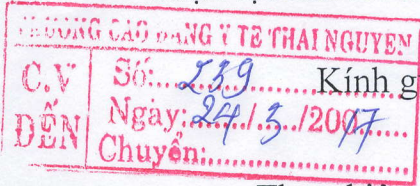 TRƯỜNG CAO ĐẲNG Y TẾ THÁI NGUYÊN
C.V ĐẾN
Số: 239
Ngày: 24/3/2017
Chuyển:
Kính g